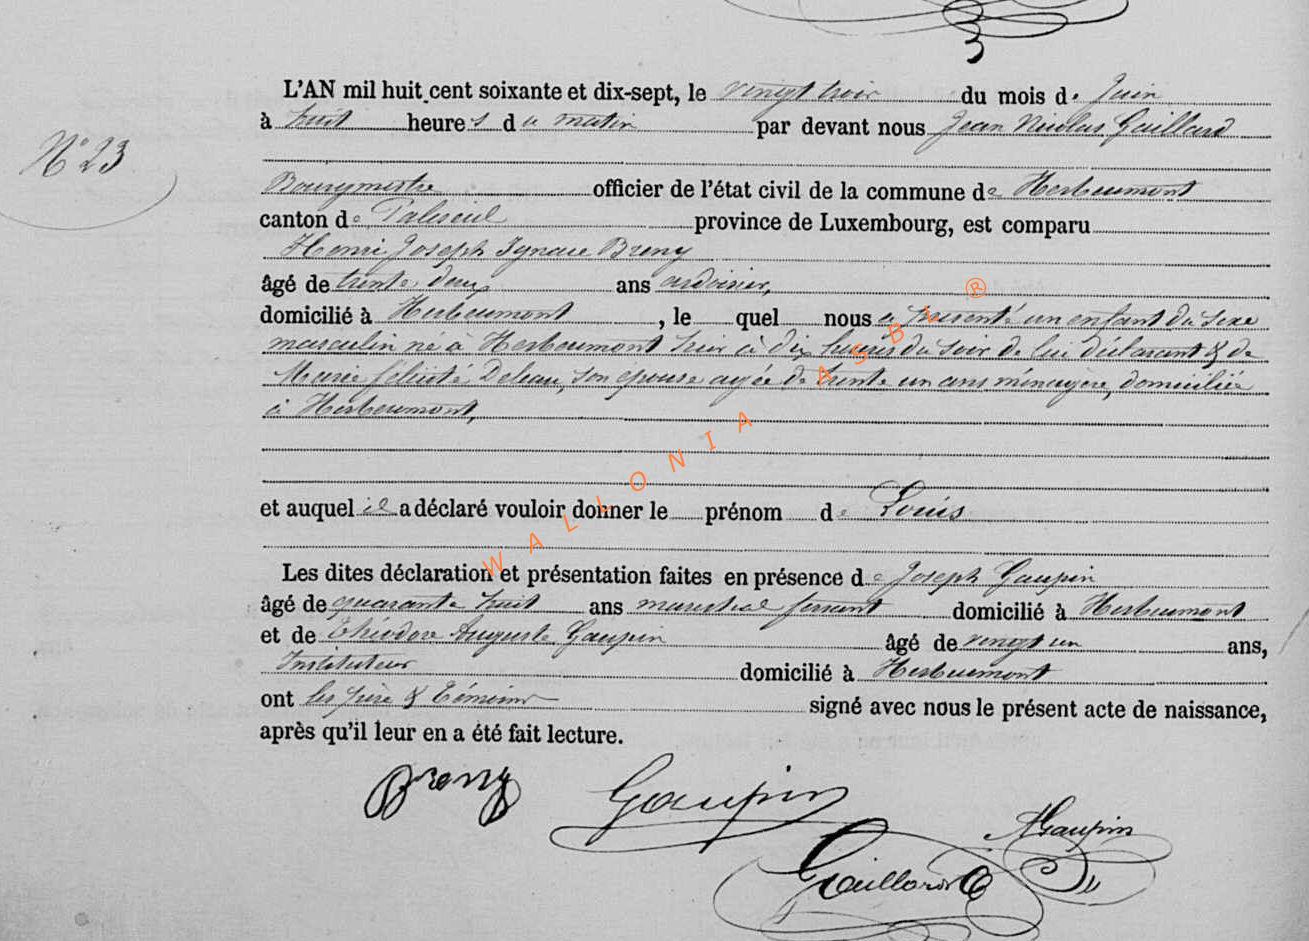 3
N° 23
L'AN mil huit cent soixante et dix-sept, le vingt trois du mois de Juin
à huit heures du matin par devant nous Jean Nicolas Gaillard
Bourgmestre officier de l'état civil de la commune de Herbeumont
canton de Paliseul province de Luxembourg, est comparu
Henri Joseph Ignace Breny
âgé de trente deux ans ardoisier,
domicilié à Herbeumont, le quel nous a présenté un enfant du sexe
masculin né à Herbeumont hier à dix heures du soir de lui déclarant & de
Marie félicité Deleau, son épouse agée de trente un ans ménagère, domiciliée
à Herbeumont,
et auquel il a déclaré vouloir donner le prénom de Louis
Les dites déclaration et présentation faites en présence de Joseph Gaupin
âgé de quarante huit ans maréchal ferrant domicilié à Herbeumont
et de Théodore Auguste Gaupin âgé de vingt un ans,
Instituteur domicilié à Herbeumont
ont les père & témoins signé avec nous le présent acte de naissance,
après qu'il leur en a été fait lecture.
Breny Gaupin
AGaupin
Gaillard
WALLONIA ASBL ®